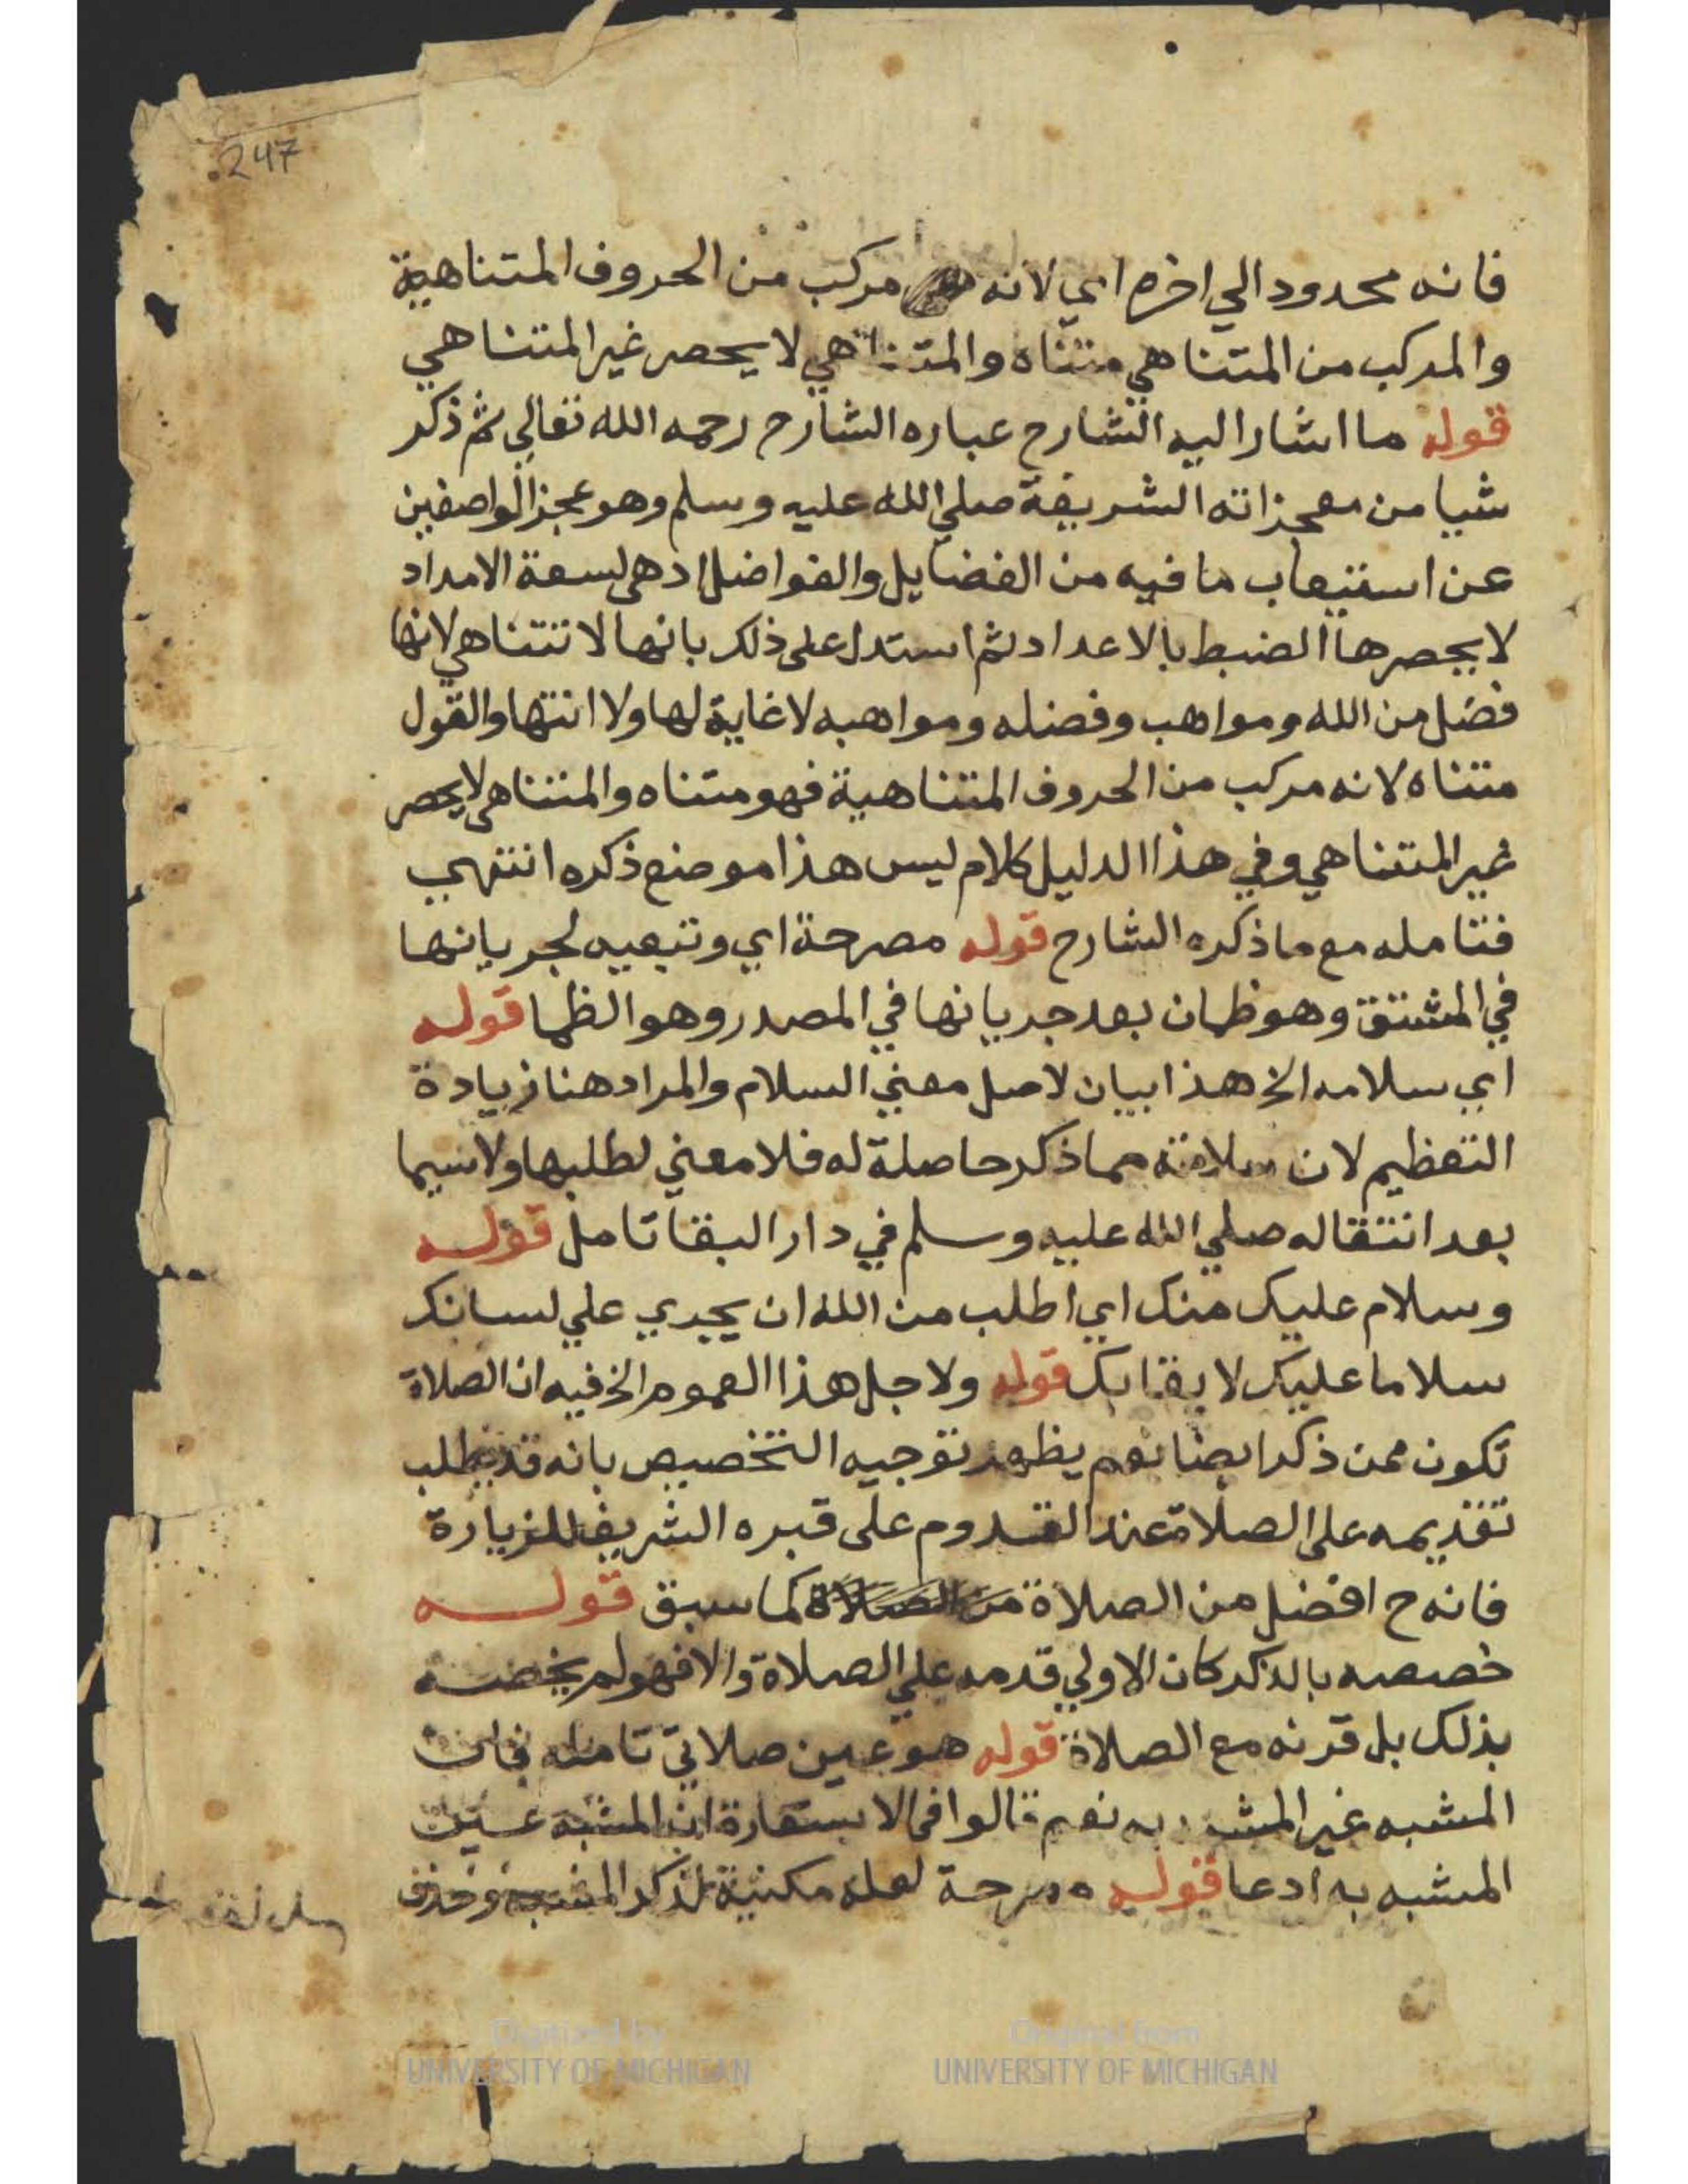 247
فانه محدود الي اخره اي لانه مركب من الحروف المتناهية
والمركب من المتناهي متناه والمتناهي لا يحصر غير المتناهي
قوله ما اشار اليه الشارح عباره الشارح رحمه الله تعالي ثم ذكر
شيا من معجزاته الشريفة صلي الله عليه وسلم وهو عجز الواصفين
عن استيعاب ما فيه من الفضايل والفواضل اذ هي لسعة الامداد
لا يحصرها الضبط بالاعداد ثم استدل على ذلك بانها لا تتناهي لانها
فضل من الله ومواهب وفضله ومواهبه لا غاية لها ولا انتها والقول
متناه لانه مركب من الحروف المتناهية فهو متناه والمتناهي لا يحصر
غير المتناهي وفي هذا الدليل كلام ليس هذا موضع ذكره انتهي
فتامله مع ما ذكره الشارح قوله مصرحة اي وتبعيه لجريانها
في المشتق وهو ظمان بعد جريانها في المصدر وهو الظما قوله
اي سلامه الخ هذا بيان لاصل معني السلام والمراد هنا زيادة
التعظيم لان سلامته مما ذكر حاصلة له فلا معني لطلبها ولا سيما
بعد انتقاله صلي الله عليه وسلم في دار البقا تامل قوله
وسلام عليك منك اي اطلب من الله ان يجري علي لسانك
سلاما عليك لا بقا بك قوله ولاجل هذا العموم الخ فيه ان الصلاة
تكون ممن ذكر ايضا نعم يظهر توجيه التخصيص بانه قد يطلب
تقديمه على الصلاة عند القدوم على قبره الشريف للزيارة
فانه ح افضل من الصلاة من الصلاة كما سبق قوله
خصصه بالذكر كان الاولي قدمه علي الصلاة والا فهو لم يخصه
بذلك بل قرنه مع الصلاة قوله هو عين صلاتي تامله فان
المشبه غير المشبه به نعم قالوا في الاستعارة ان المشبه عين
المشبه به ادعا قوله مصرحة لعله مكنية لذكر المشبه وحذف
Digitized by
UNIVERSITY OF MICHIGAN
Original from
UNIVERSITY OF MICHIGAN